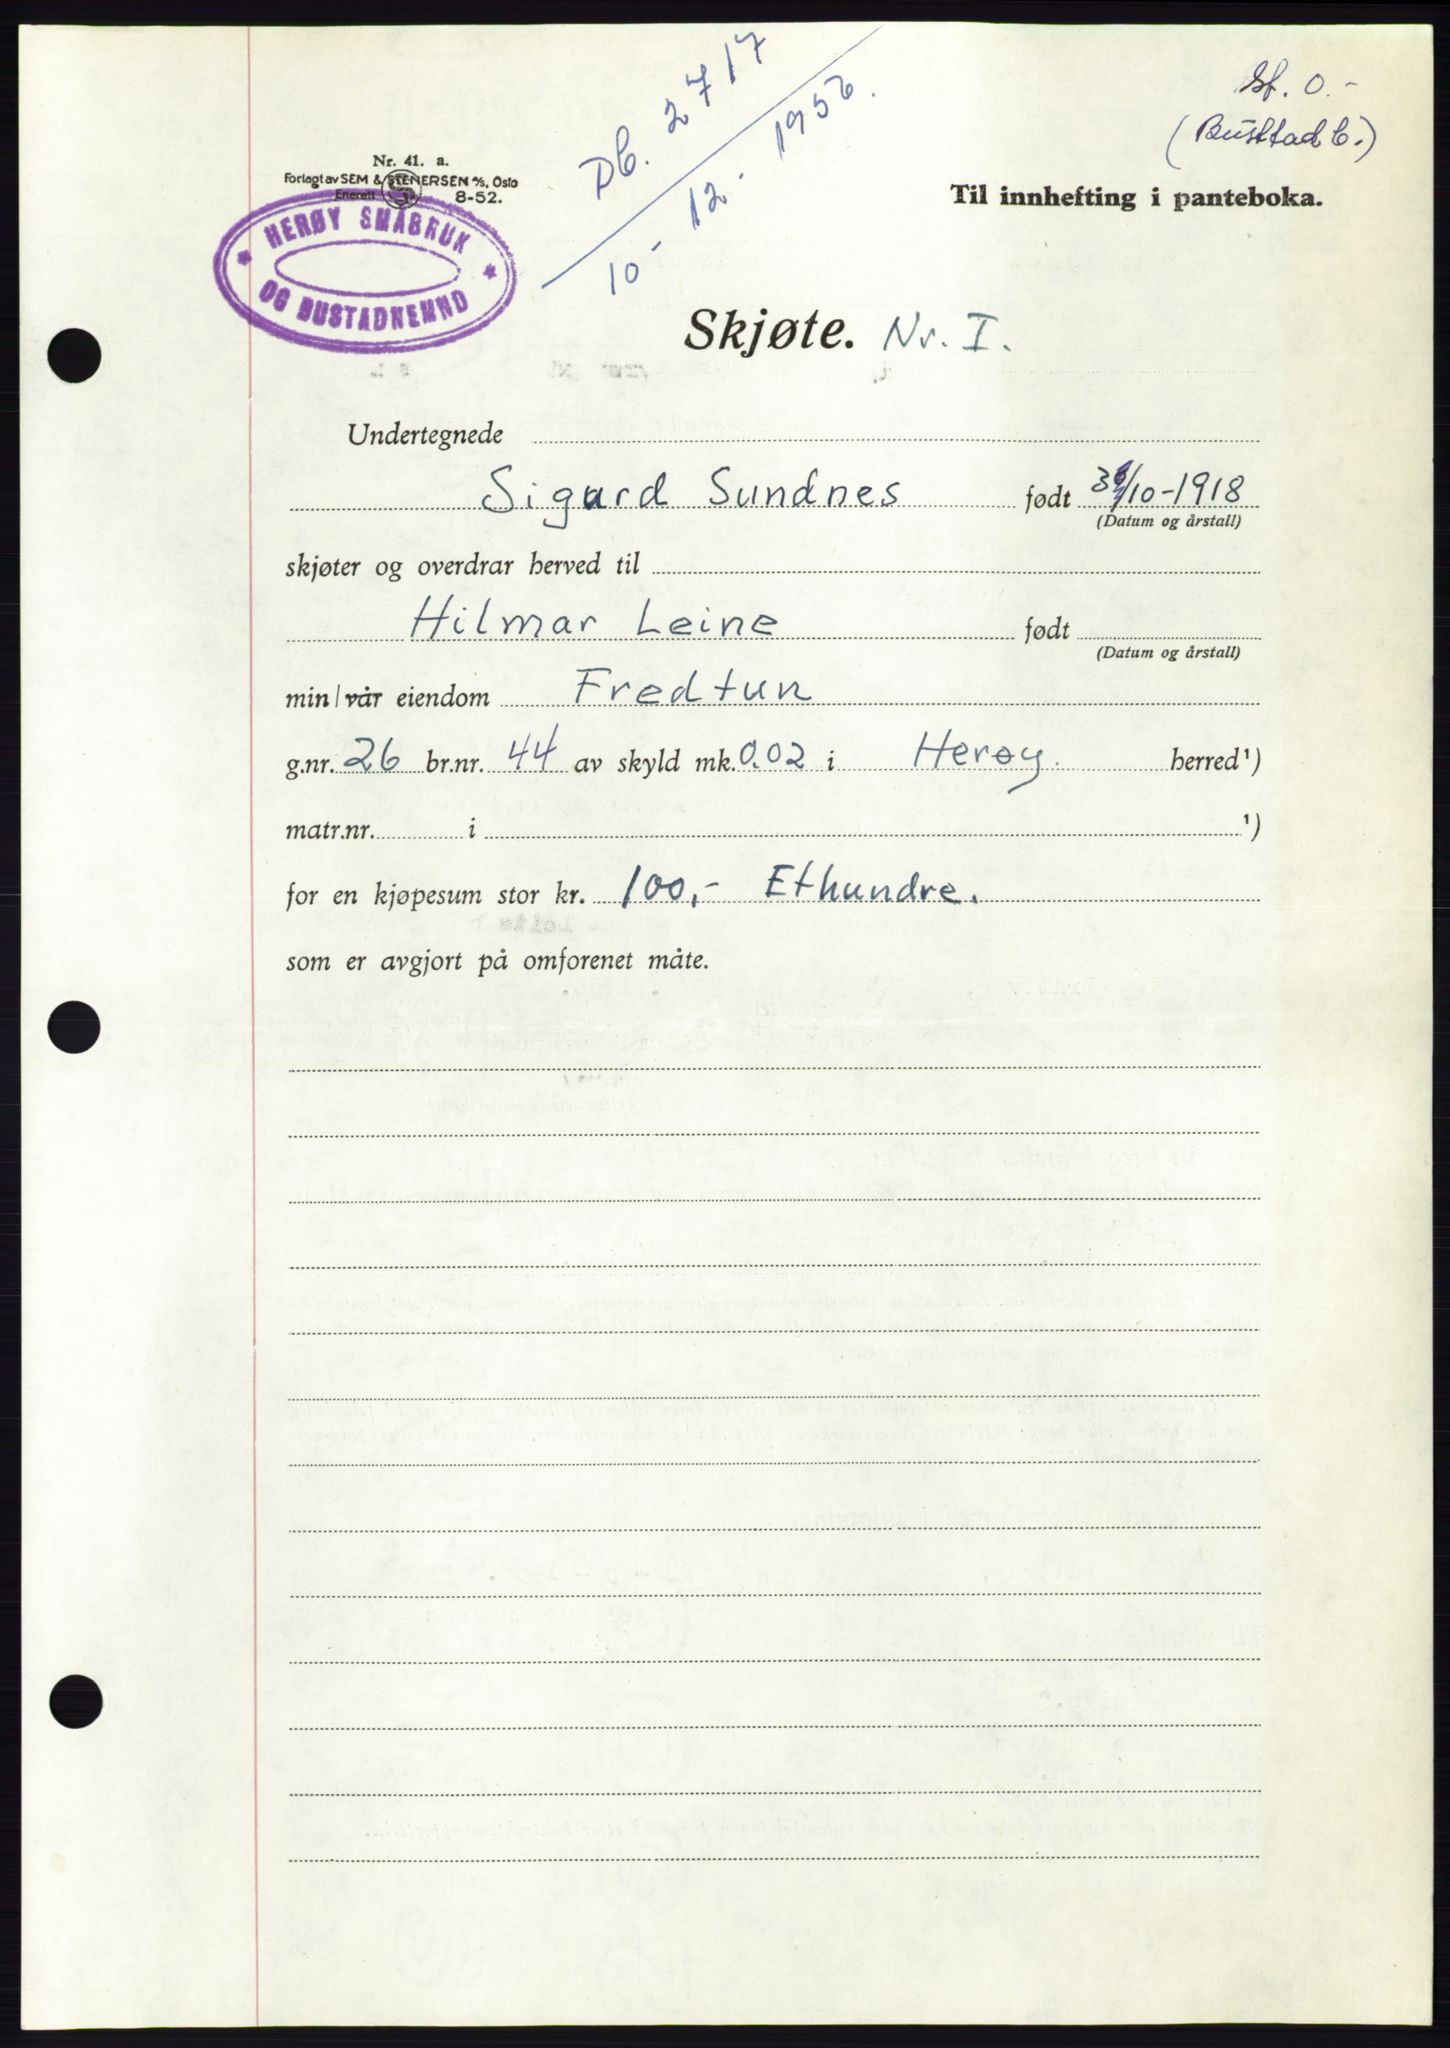 Db. 2717
10 - 12. 1956.
Sf. 0.-
(Bustad b.)
Nr. 41. a.
Forlagt av SEM & STENERSEN A/S, Oslo
Enerett S 8-52.
HERØY SMÅBRUK
OG BUSTADNEMND
Til innhefting i panteboka.
Skjøte. Nr. I.
Undertegnede
Sigurd Sundnes født /10-1918
(Datum og årstall)
skjøter og overdrar herved til
Hilmar Leine født
(Datum og årstall)
min/vår eiendom Fredtun
g.nr. 26 br.nr. 44 av skyld mk. 0.02 i Herøy. herred¹)
matr.nr. i ¹)
for en kjøpesum stor kr. 100,- Ethundre.
som er avgjort på omforenet måte.